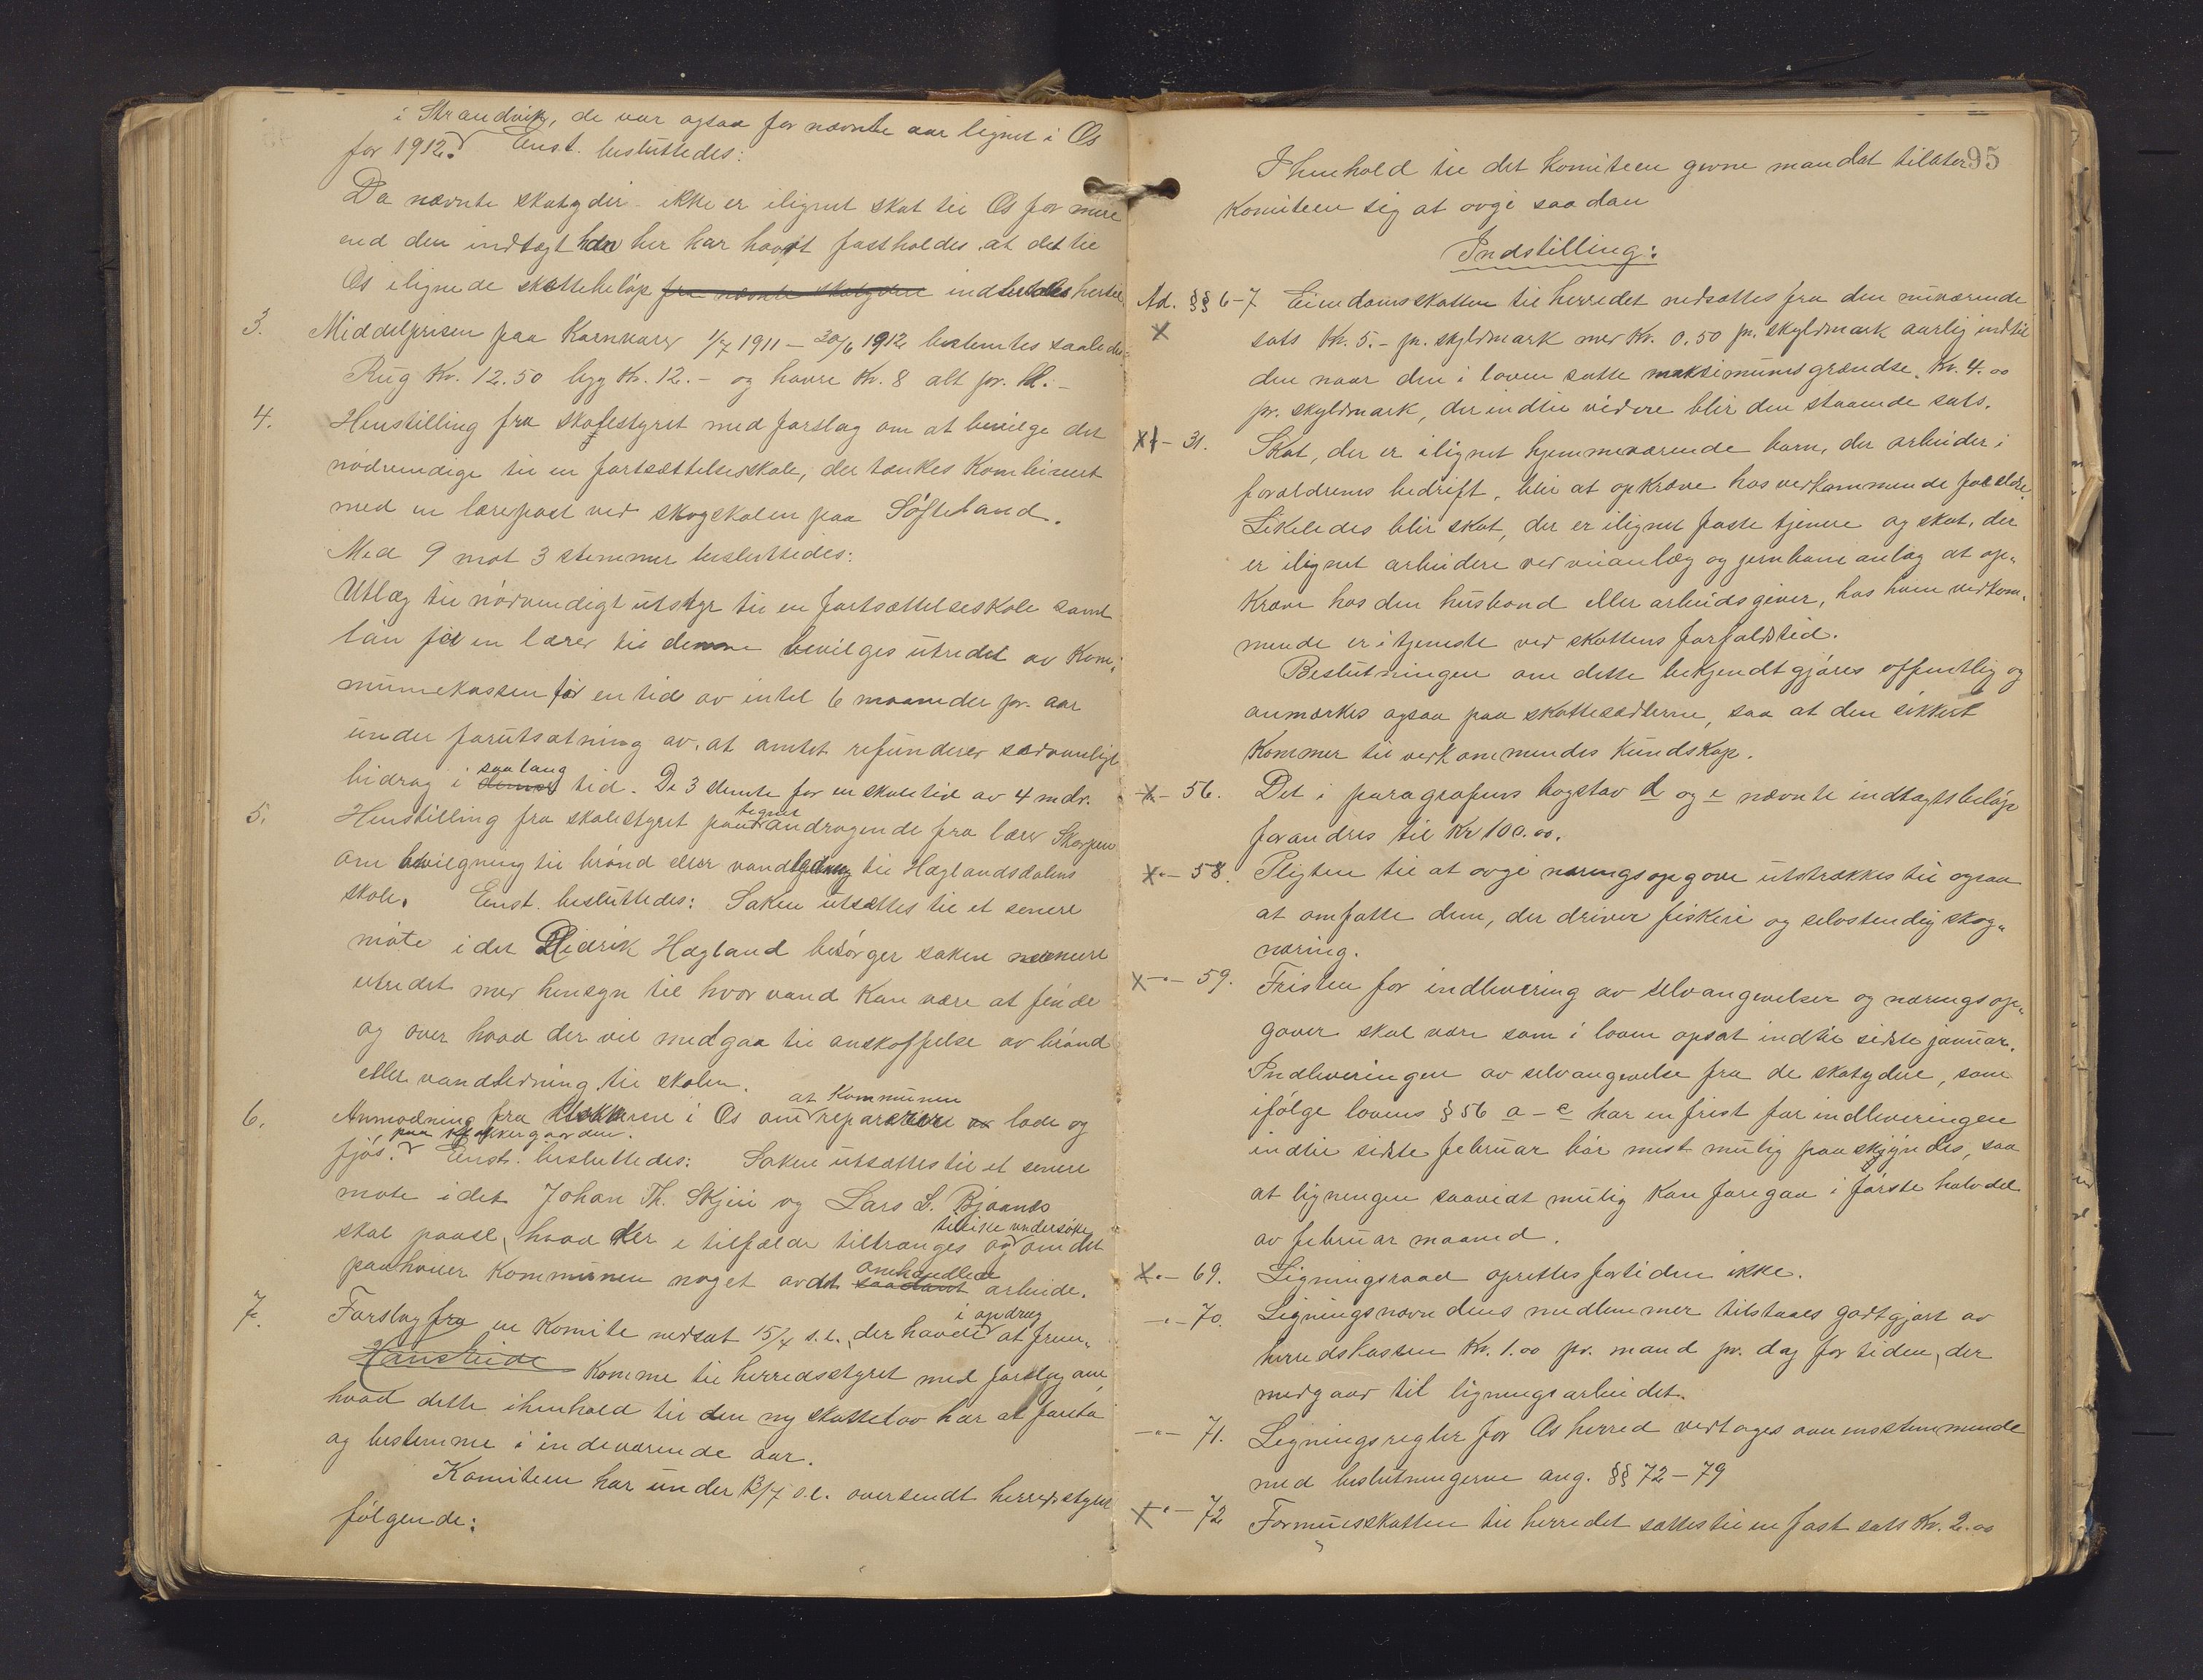 i Strandvik, de var ogsaa for nævnte aar lignet i Os
for 1912. Enst. besluttedes:
Da nævnte skatyder ikke er ilignet skat til Os for mere
end den indtægt han her har havt fastholdes at det til
Os ilignede skattebeløp fra nævnte skatyder indbetales hertil
3. Middelprisen paa Kornvarer 1/7 1911 – 30/6 1912 bestemtes saaledes:
Rug Kr. 12.50 byg Kr. 12.- og havre Kr. 8 alt pr. hl. -
4. Henstilling fra skolestyret med forslag om at bevilge det
nødvendige til en fortsættelsesskole, der tænkes Kombinert
med en lærepost ved skogskolen paa Søfteland.
Med 9 mot 3 stemmer besluttedes:
Utlæg til nødvendigt utstyr til en fortsættelseskole samt
løn for en lærer til denne bevilges utredet av Kom-
munekassen for en tid av intil 6 maaneder pr. aar
under forutsætning av, at amtet refunderer sedvanligt
saa lang
bidrag i denne tid. De 3 stemte for en skoletid av 4 mdr.
5. Henstilling fra skolestyret paa
tegnet
andragende fra lærer Skorpen
om bevilgning til brønd eller vandledning til Hæglandsdalens
skole. Enst. besluttedes: Saken utsættes til et senere
møte i det Didrik Hægland besørger saken nærmere
utredet med hensyn til hvor vand Kan være at finde
og over hvad der vil medgaa til anskaffelse av brønd
eller vandledning til skolen.
at Kommunen
6. Anmodning fra klokkerne i Os om reparerer lade og
paa klokkergaarden.
fjøs. Enst. besluttedes: Saken utsættes til et senere
møte i det Johan Th. Skjei og Lars L. Bjaanes
tillike undersøke
skal paase, hvad der i tilfælde tiltrænges og om det
omhandlede
paahviler Kommunen noget av det saadant arbeide.
i opdrag
7. Forslag fra en Komite nedsat 15/4 s.l. der havde at frem-
Haustveide Komme til herredsstyret med forslag om
hvad dette ihenhold til den ny skattelov har at foreta
og bestemme i indeværende aar.
Komiteen har under 12/7 s.l. oversendt herredsstyret
følgende:
95
I henhold til det komiteen givne mandat tillater
Komiteen sig at avgi saadan
Indstilling:
Ad. §§ 6-7 Eiendomsskatten til herredet nedsættes fra den nuværende
X sats Kr. 5.- pr. skyldmark med Kr. 0.50 pr. skyldmark aarlig indtil
den naar den i loven satte maksimumsgrændse, Kr. 4.00
pr. skyldmark, der indtil videre blir den staaende sats.
X – 31. Skat, der er ilignet hjemmeværende barn, der arbeider i
forældrenes bedrift, blir at opkræve hos vedkommende forældre.
Likeledes blir skat, der er ilignet faste tjenere og skat, der
er ilignet arbeidere ved veianlæg og jernbaneanlæg at op-
kræve hos den husbond eller arbeidsgiver, hos hvem vedkom-
mende er i tjeneste ved skattens forfaldstid.
Beslutningen om dette bekjendtgjøres offentlig og
anmærkes ogsaa paa skattesedlerne, saa at den sikkert
Kommer til vedkommendes Kundskap.
X – 56. Det i paragrafens bogstav d og e nævnte indtægtsbeløp
forandres til Kr 100.00.
X – 58. Pligten til at avgi næringsopgave utstrækkes til ogsaa
at omfatte dem, der driver fiskeri og selvstendig skog-
næring.
X – 59. Fristen for indlevering av selvangivelser og næringsop-
gaver skal være som i loven opsat indtil sidste januar.
Indleveringen av selvangivelse fra de skatydere, som
ifølge lovens § 56 a – c har en frist for indleveringen
indtil sidste februar bør mest mulig paaskyndes, saa
at ligningen saavidt mulig Kan foregaa i første halvdel
av februar maaned.
X – 69. Ligningsraad oprettes fortiden ikke.
– 70. Ligningsnævndens medlemmer tilstaaes godtgjort av
herredskassen Kr. 1.00 pr. mand pr. dag for tiden, der
medgaar til ligningsarbeidet.
– 71. Ligningsregler for Os herred vedtages overensstemmende
med beslutningerne ang. §§ 72 – 79
X – 72 Formuesskatten til herredet sættes til en fast sats Kr. 2.00